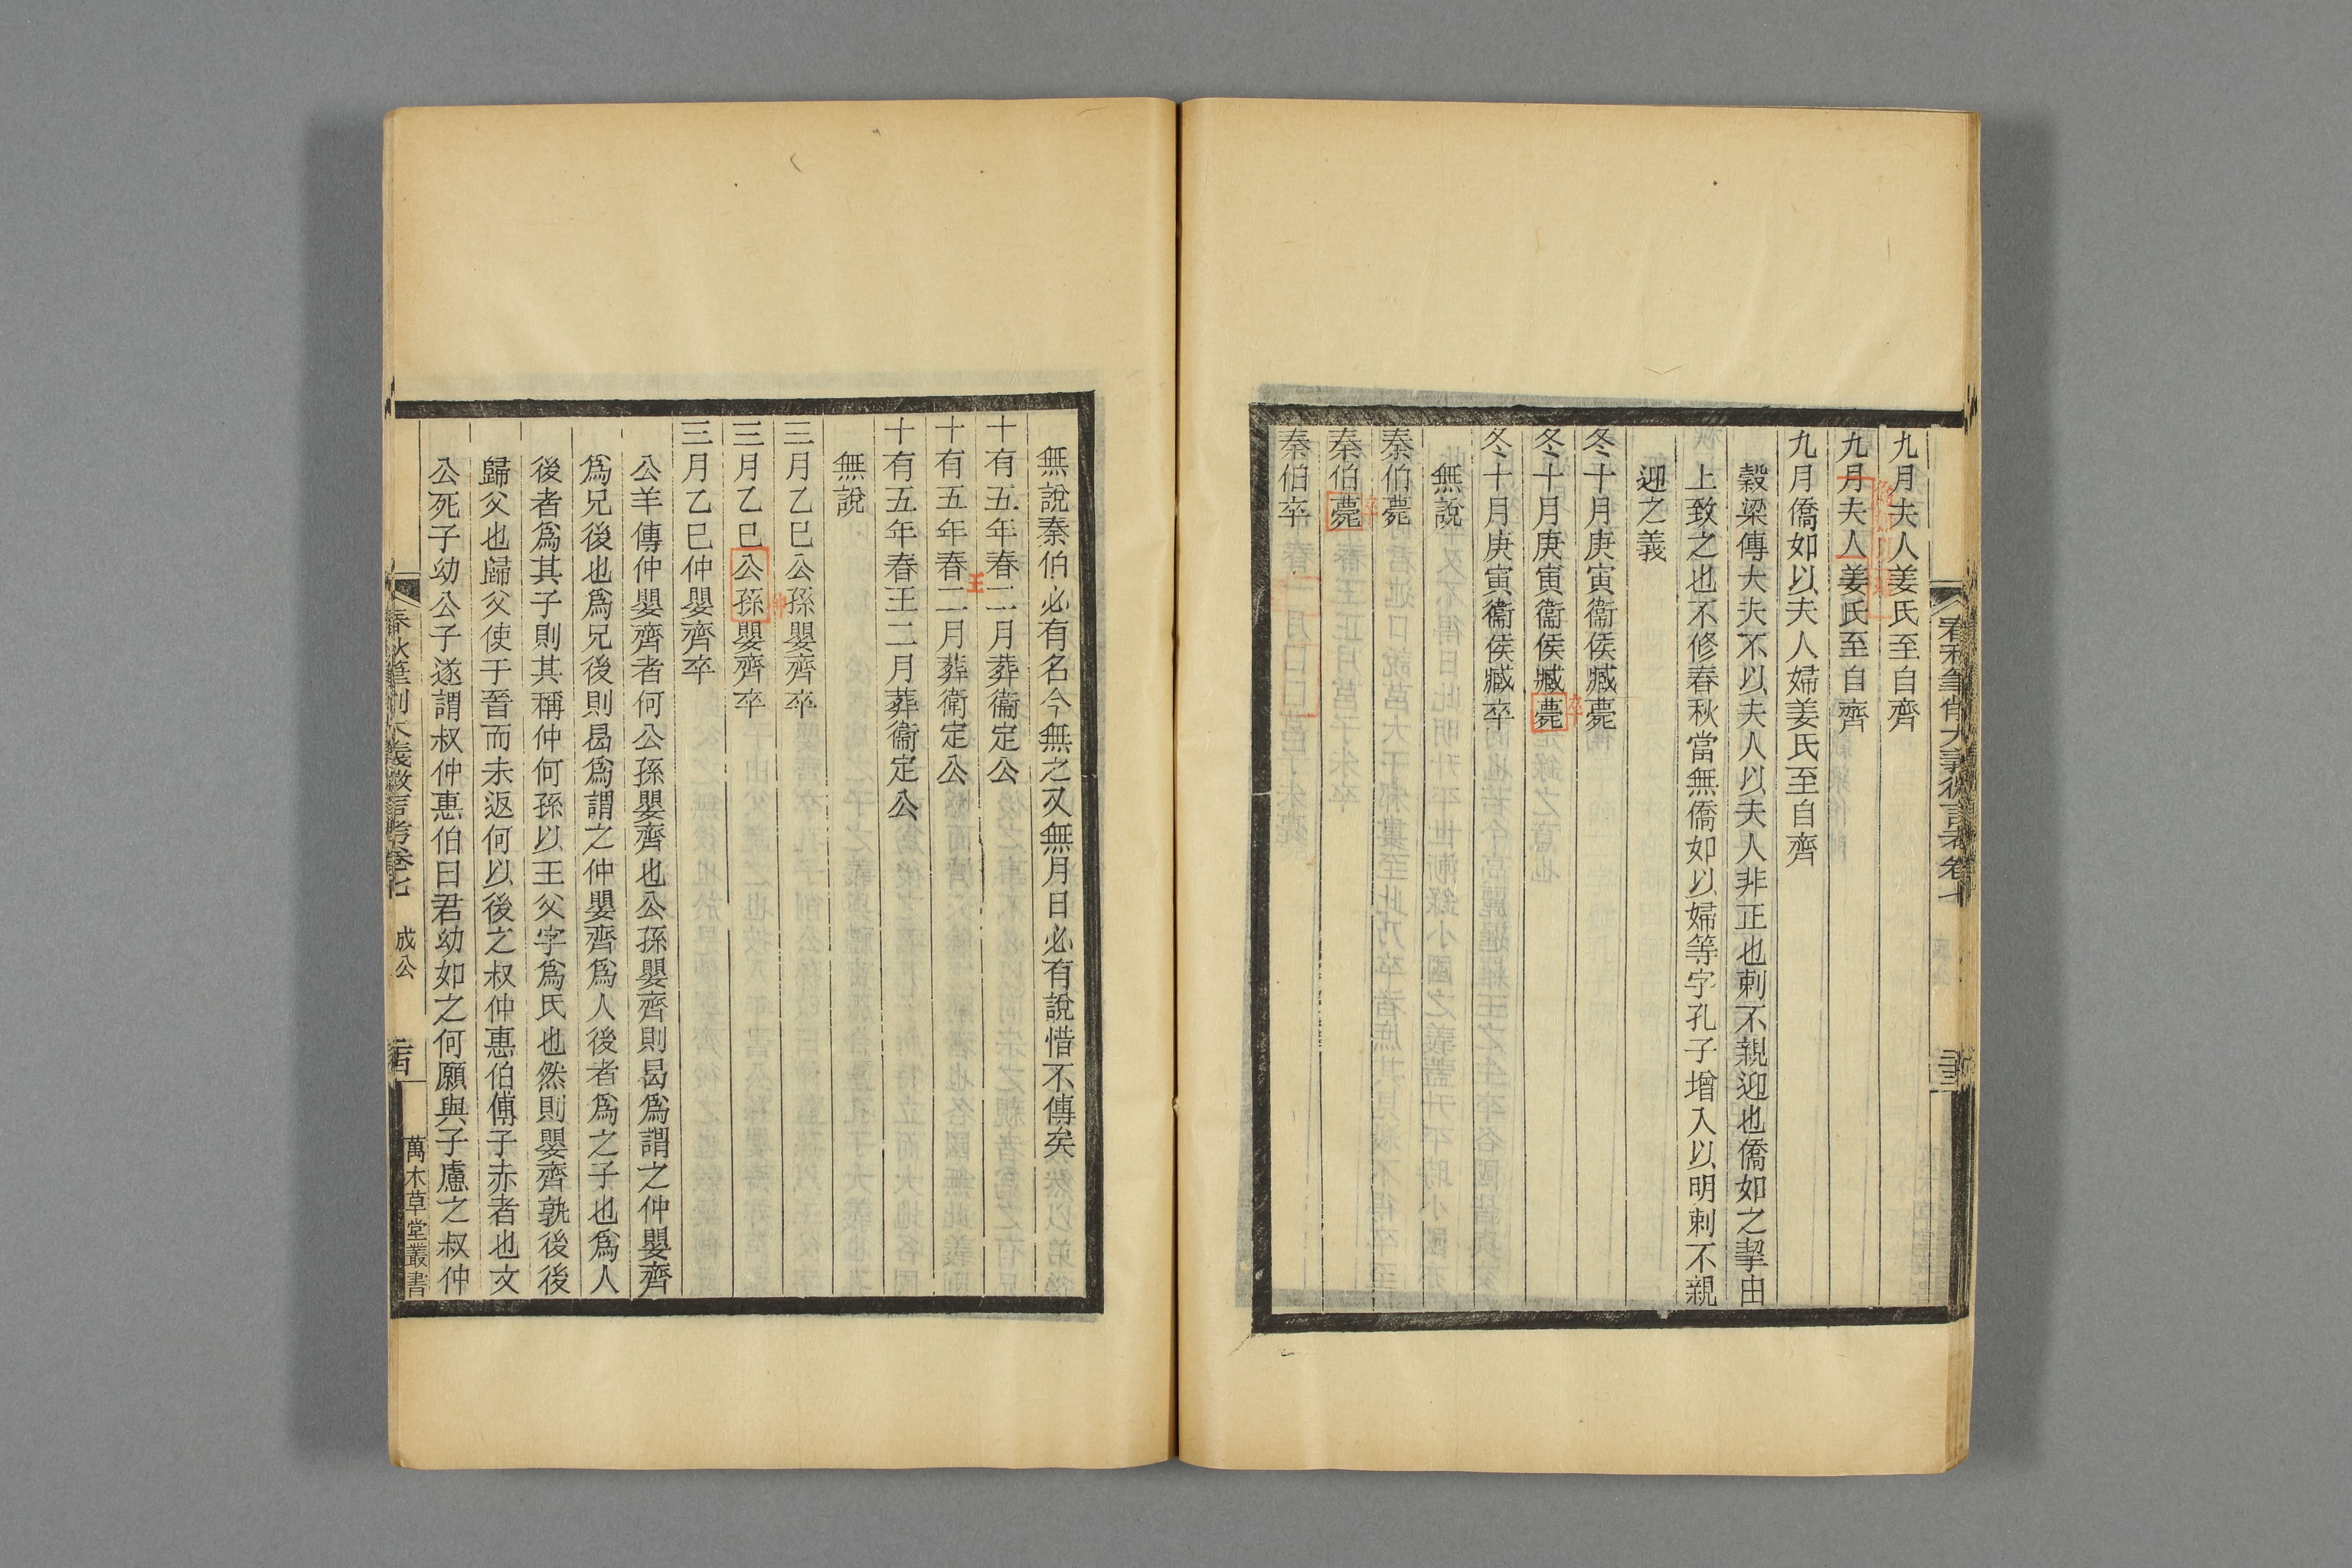 九月夫人姜氏至自齊
九月夫人姜氏至自齊
九月僑如以夫人婦姜氏至自齊
穀梁傳大夫不以夫人以夫人非正也刺不親迎也僑如之挈由
上致之也不修春秋當無僑如以婦等字孔子增入以明刺不親
迎之義
冬十月庚寅衞侯臧薨
冬十月庚寅衞侯臧薨
卒
冬十月庚寅衞侯臧卒
無說
秦伯薨
秦伯薨
卒
秦伯卒
無說秦伯必有名今無之又無月日必有說惜不傳矣
十有五年春二月葬衞定公
十有五年春二月葬衞定公
王
十有五年春王二月葬衞定公
無說
三月乙巳公孫嬰齊卒
三月乙巳公孫嬰齊卒
仲
三月乙巳仲嬰齊卒
公羊傳仲嬰齊者何公孫嬰齊也公孫嬰齊則曷爲謂之仲嬰齊
爲兄後也爲兄後則曷爲謂之仲嬰齊爲人後者爲之子也爲人
後者爲其子則其稱仲何孫以王父字爲氏也然則嬰齊孰後後
歸父也歸父使于晉而未返何以後之叔仲惠伯傅子赤者也文
公死子幼公子遂謂叔仲惠伯曰君幼如之何願與子慮之叔仲
春秋筆削大義微言考卷七
成公
萬木草堂叢書